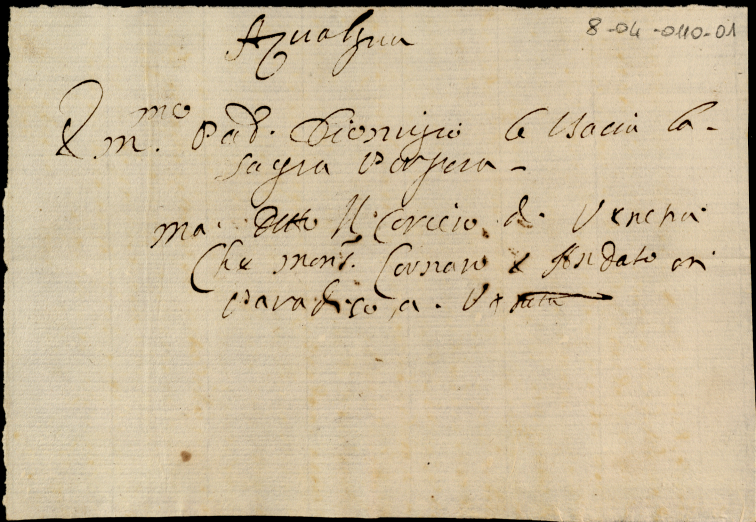 8-04-040-01
R.mo Pad. Dionigio le bacia la
sagra Porpora -
ma. detto Il Coriero di. Venetia
Che Mons. Cornaro è Andato in
Paradiso, a.